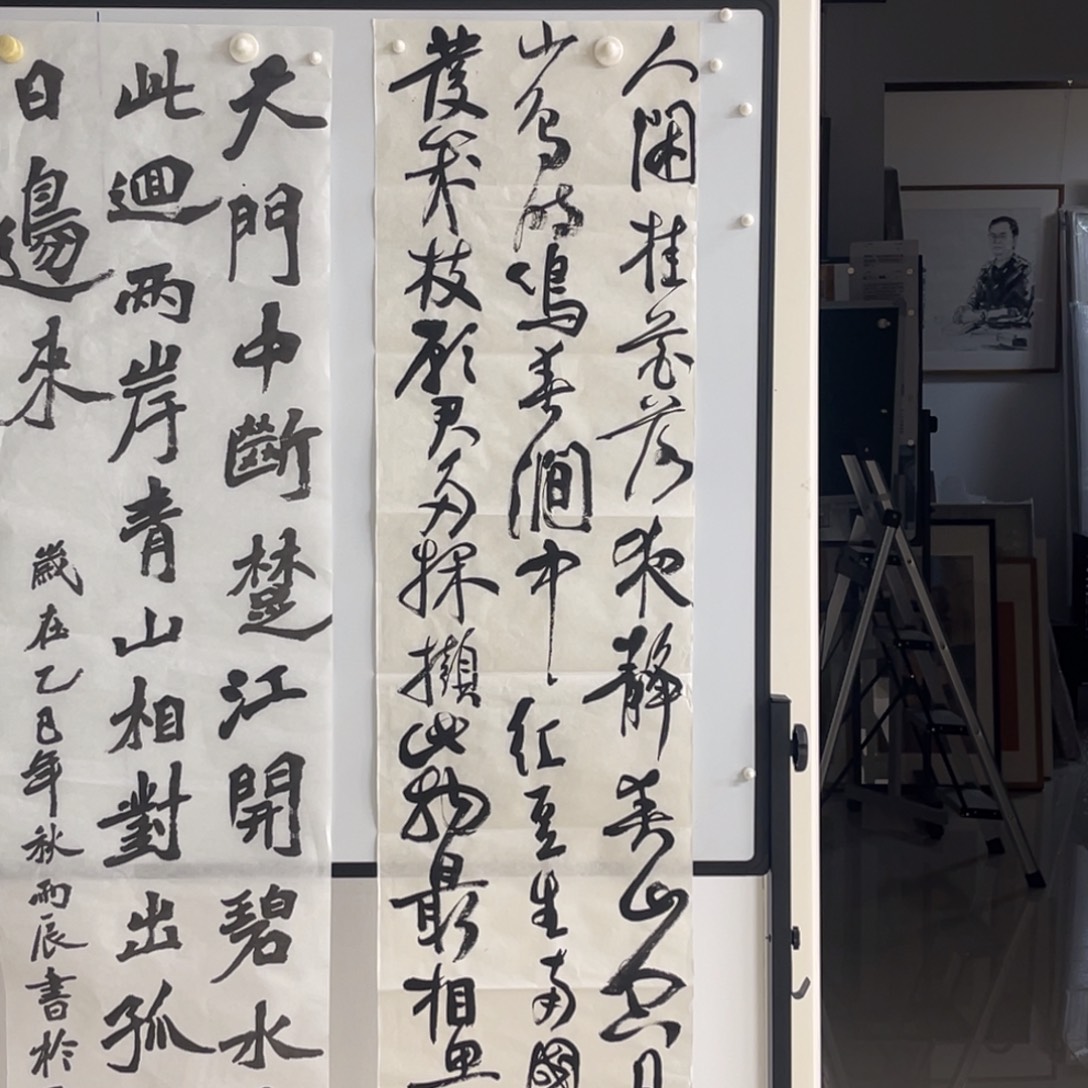 人閑桂花落夜靜春山空月
山鳥時鳴春澗中紅豆生南國
發幾枝願君多採擷此物最相思
天門中斷楚江開碧水
此迴兩岸青山相對出孤
日邊來
歲在乙巳年秋雨辰書於